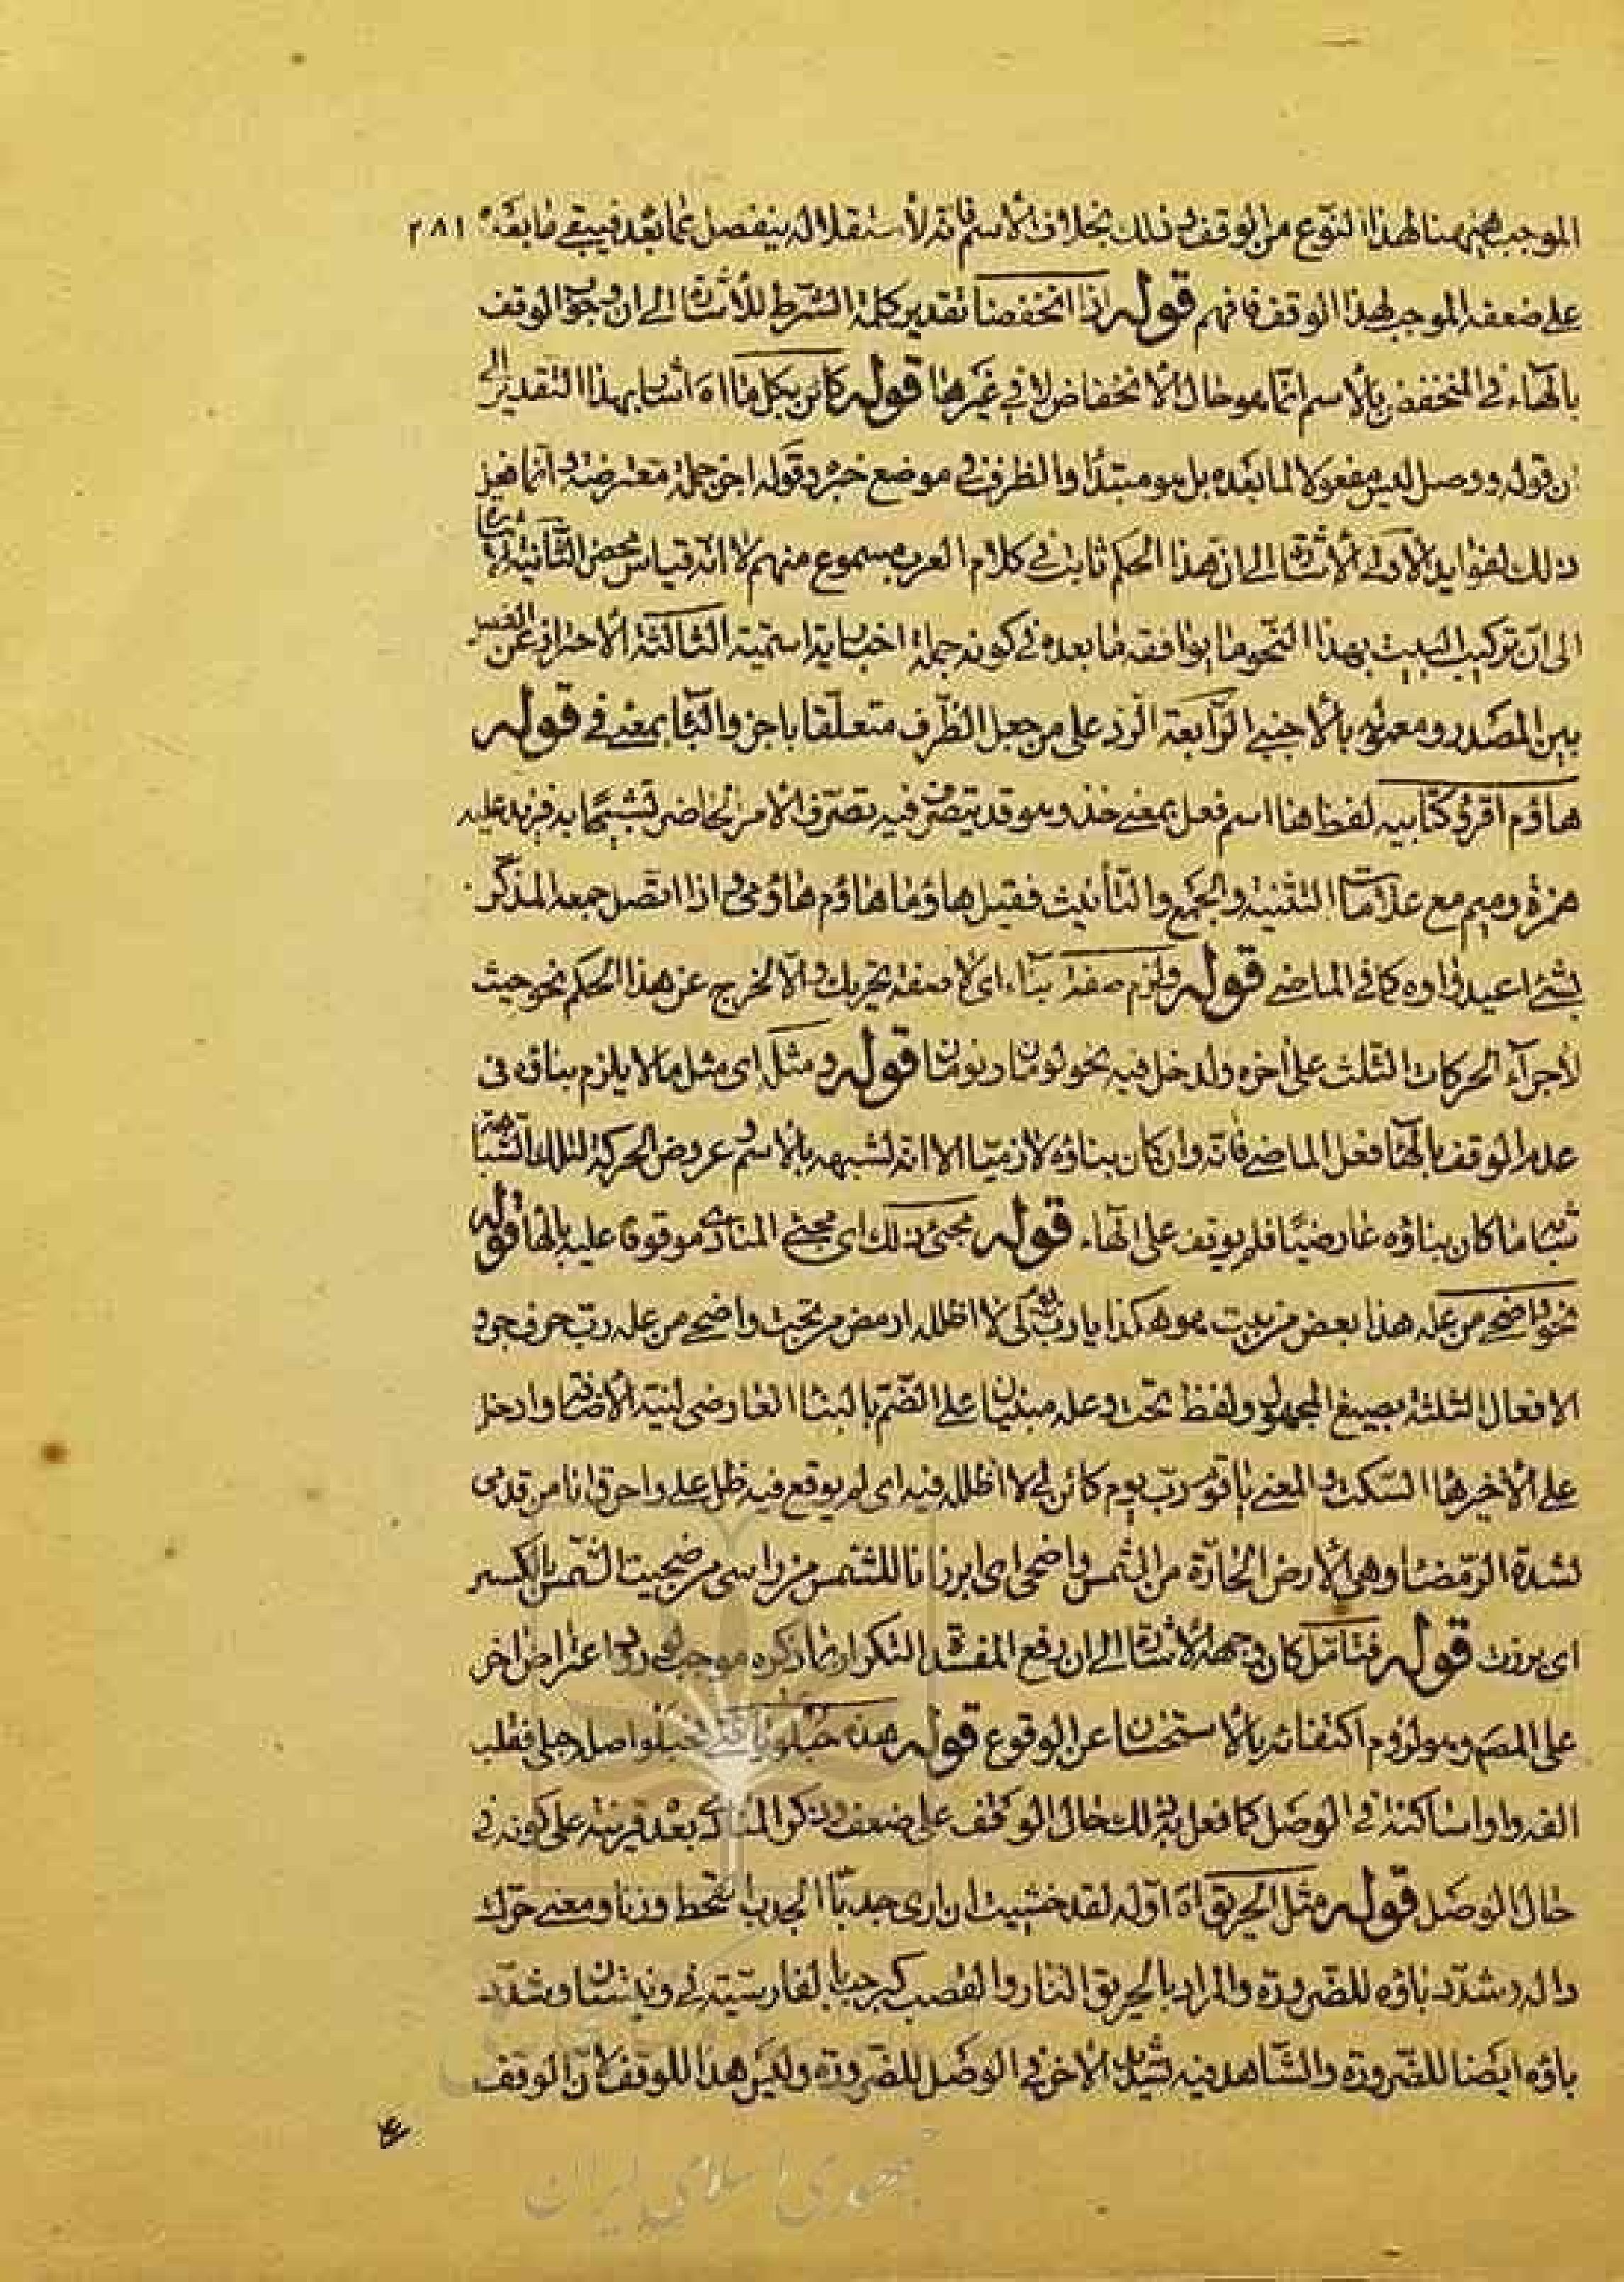 الموجب هنا لهذا النوع من الوقف ذلك بخلاف الاسم فانه لاستقلاله ينفصل عما بعد فيبقى ٢٨١
على ضعفه الموجب لهذا الوقف فافهم قوله اذا انخفضا تقدير كلمة الشرط للاشارة الى ان وجوب الوقف
بالهاء في المنخفض بالاسم انما هو حال الانخفاض لا في غيرها قوله كائن بكل ما اه اشار بهذا التقدير الى
ان قوله ووصل ليس مفعولا لما بعده بل هو مبتدأ والظرف في موضع خبره وقوله اجز جملة معترضة وانما
ذلك لفوايد الاولى الاشارة الى ان هذا الحكم ثابت في كلام العرب مسموع منهم لا انه قياس محض الثانية
الى ان تركيب البيت بهذا النحو ما يوافقه ما بعده في كونه جملة اخبارية اسمية الثالثة الاحتراز عن الفصل
بين المصدر ومعموله بالاجنبي الرابعة الرد على من جعل الظرف متعلقا باجز والباء بمعنى في قوله
هاؤم اقرؤ كتابيه لفظ ها اسم فعل بمعنى خذ وهو قد يتصرف فيه تصرف الامر الحاضر تشبيها به فيزيد عليه
همزة وميم مع علامتا التثنية والجمع والتأنيث فقيل هاؤما هاؤم هاؤن واذا اتصل جمعه المذكر
بشئ اعيد واوه كما في الماضي قوله ولزم صفة بناء اى لا صفة تحريك والا لخرج عن هذا الحكم نحو حيث
لاجراء الحركات الثلث على اخره ولدخل فيه نحو لومان ونومان قوله ومثله اى مثل ما لا يلزم بناؤه في
عدم الوقف بالهاء فعل الماضي فانه وان كان بناؤه لازميا الا انه لشبهه بالاسم وعروض الحركة لتلك المشابهة
شبيها ما كان بناؤه عارضيا فلم يوقف على الهاء قوله مجئ ذلك اى مجئ المنادى موقوفا عليه بالهاء قوله
نحو واضحى من عله هذا بعض من بيت هو هكذا يا رب يوم لى لا اظلله ارمض من تحت واضحى من عله رب حرف جر و
الافعال الثلثة بصيغ المجهول ولفظ تحت وعله مبنيان على الضم بالبناء العارضى لنية الاضافة وادخل
على الاخير هاء السكت والمعنى يا قوم رب يوم كائن لى لا اظلله فيه اى لم يوقع فيه ظل على واحرق انا من قدمى
لشدة الرمضاء وهى الارض الحارة من الشمس واضحى اى ابرز انا للشمس من راسى من ضحيت الشمس بالكسر
اى برزت قوله فتامل كان وجهه الاشارة الى ان دفع المفسد التكرار بما ذكره موجب لورود اعتراض اخر
على المصم وهو لزوم اكتفائه بالاستحسان عن الوقوع قوله هذه حبلو يا فتى حبلوا اصله حبلى فقلب
الفه واوا ساكنة في الوصل كما فعل به ذلك حال الوقف على ضعف وذكر المنادى بعد قرينة على كونه في
حال الوصل قوله مثل الحريق اه اوله لقد خشيت ان ارى جدبا الجدب القحط وزنا ومعنى حرك
داله وشدد باؤه للضرورة والمراد بالحريق النار والقصب كبر حبا بالفارسية نى ونيستان وشدد
باؤه ايضا للضرورة والشاهد فيه تشديد الاخر في الوصل للضرورة وليس هذا للوقف لان الوقف
جمهوری اسلامی ایران